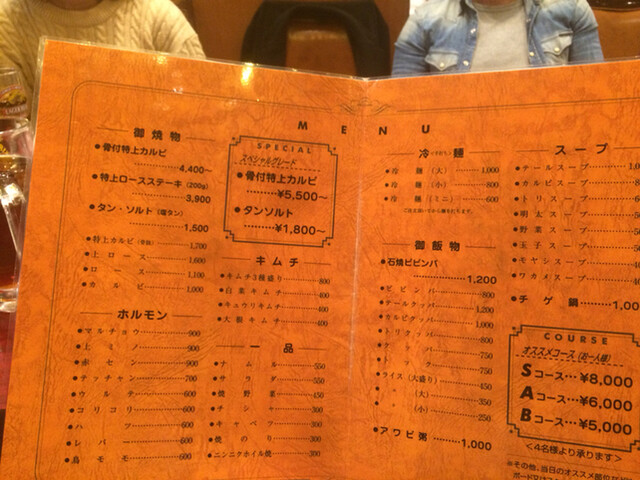 MENU
御焼物
●骨付特上カルビ
4,400～
●特上ロースステーキ(200g)
3,900
●タン・ソルト(塩タン)
1,500
●特上カルビ(骨無) 1,700
●上ロース 1,600
●ロース 1,100
●カルビ 1,000
ホルモン
●マルチョウ 900
●上ミノ 900
●赤セン 900
●テッチャン 700
●ウルテ 600
●コリコリ 600
●ハツ 600
●レバー 600
●鳥モモ 600
SPECIAL
スペシャルグレード
●骨付特上カルビ
¥5,500～
●タンソルト
¥1,800～
キムチ
●キムチ3種盛り 800
●白菜キムチ 400
●キュウリキムチ 400
●大根キムチ 400
一品
●ナムル 550
●サラダ 550
●焼野菜 450
●チンヤ 300
●キャベツ 300
●焼のり 300
●ニンニクホイル焼 300
冷麺
●冷麺(大) 1,000
●冷麺(小) 800
●冷麺(ミニ) 600
御飯物
●石焼ビビンバ
1,200
●ビビンバ 800
●テールクッパ 1,200
●カルビクッパ 1,000
●トリクッパ 800
750
750
●ライス(大盛り) 450
(大) 350
(小) 250
●アワビ粥 1,000
スープ
●テールスープ
●カルビスープ
●トリスープ
●明太スープ
●野菜スープ
●玉子スープ
●モヤシスープ
●ワカメスープ
●チゲ鍋
COURSE
オススメコース(お一人様)
Sコース…¥8,000
Aコース…¥6,000
Bコース…¥5,000
＜4名様より承ります＞
※その他、当日のオススメ部位など